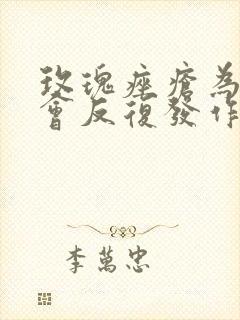 玫瑰痤瘡為
會反復發作
李萬忠